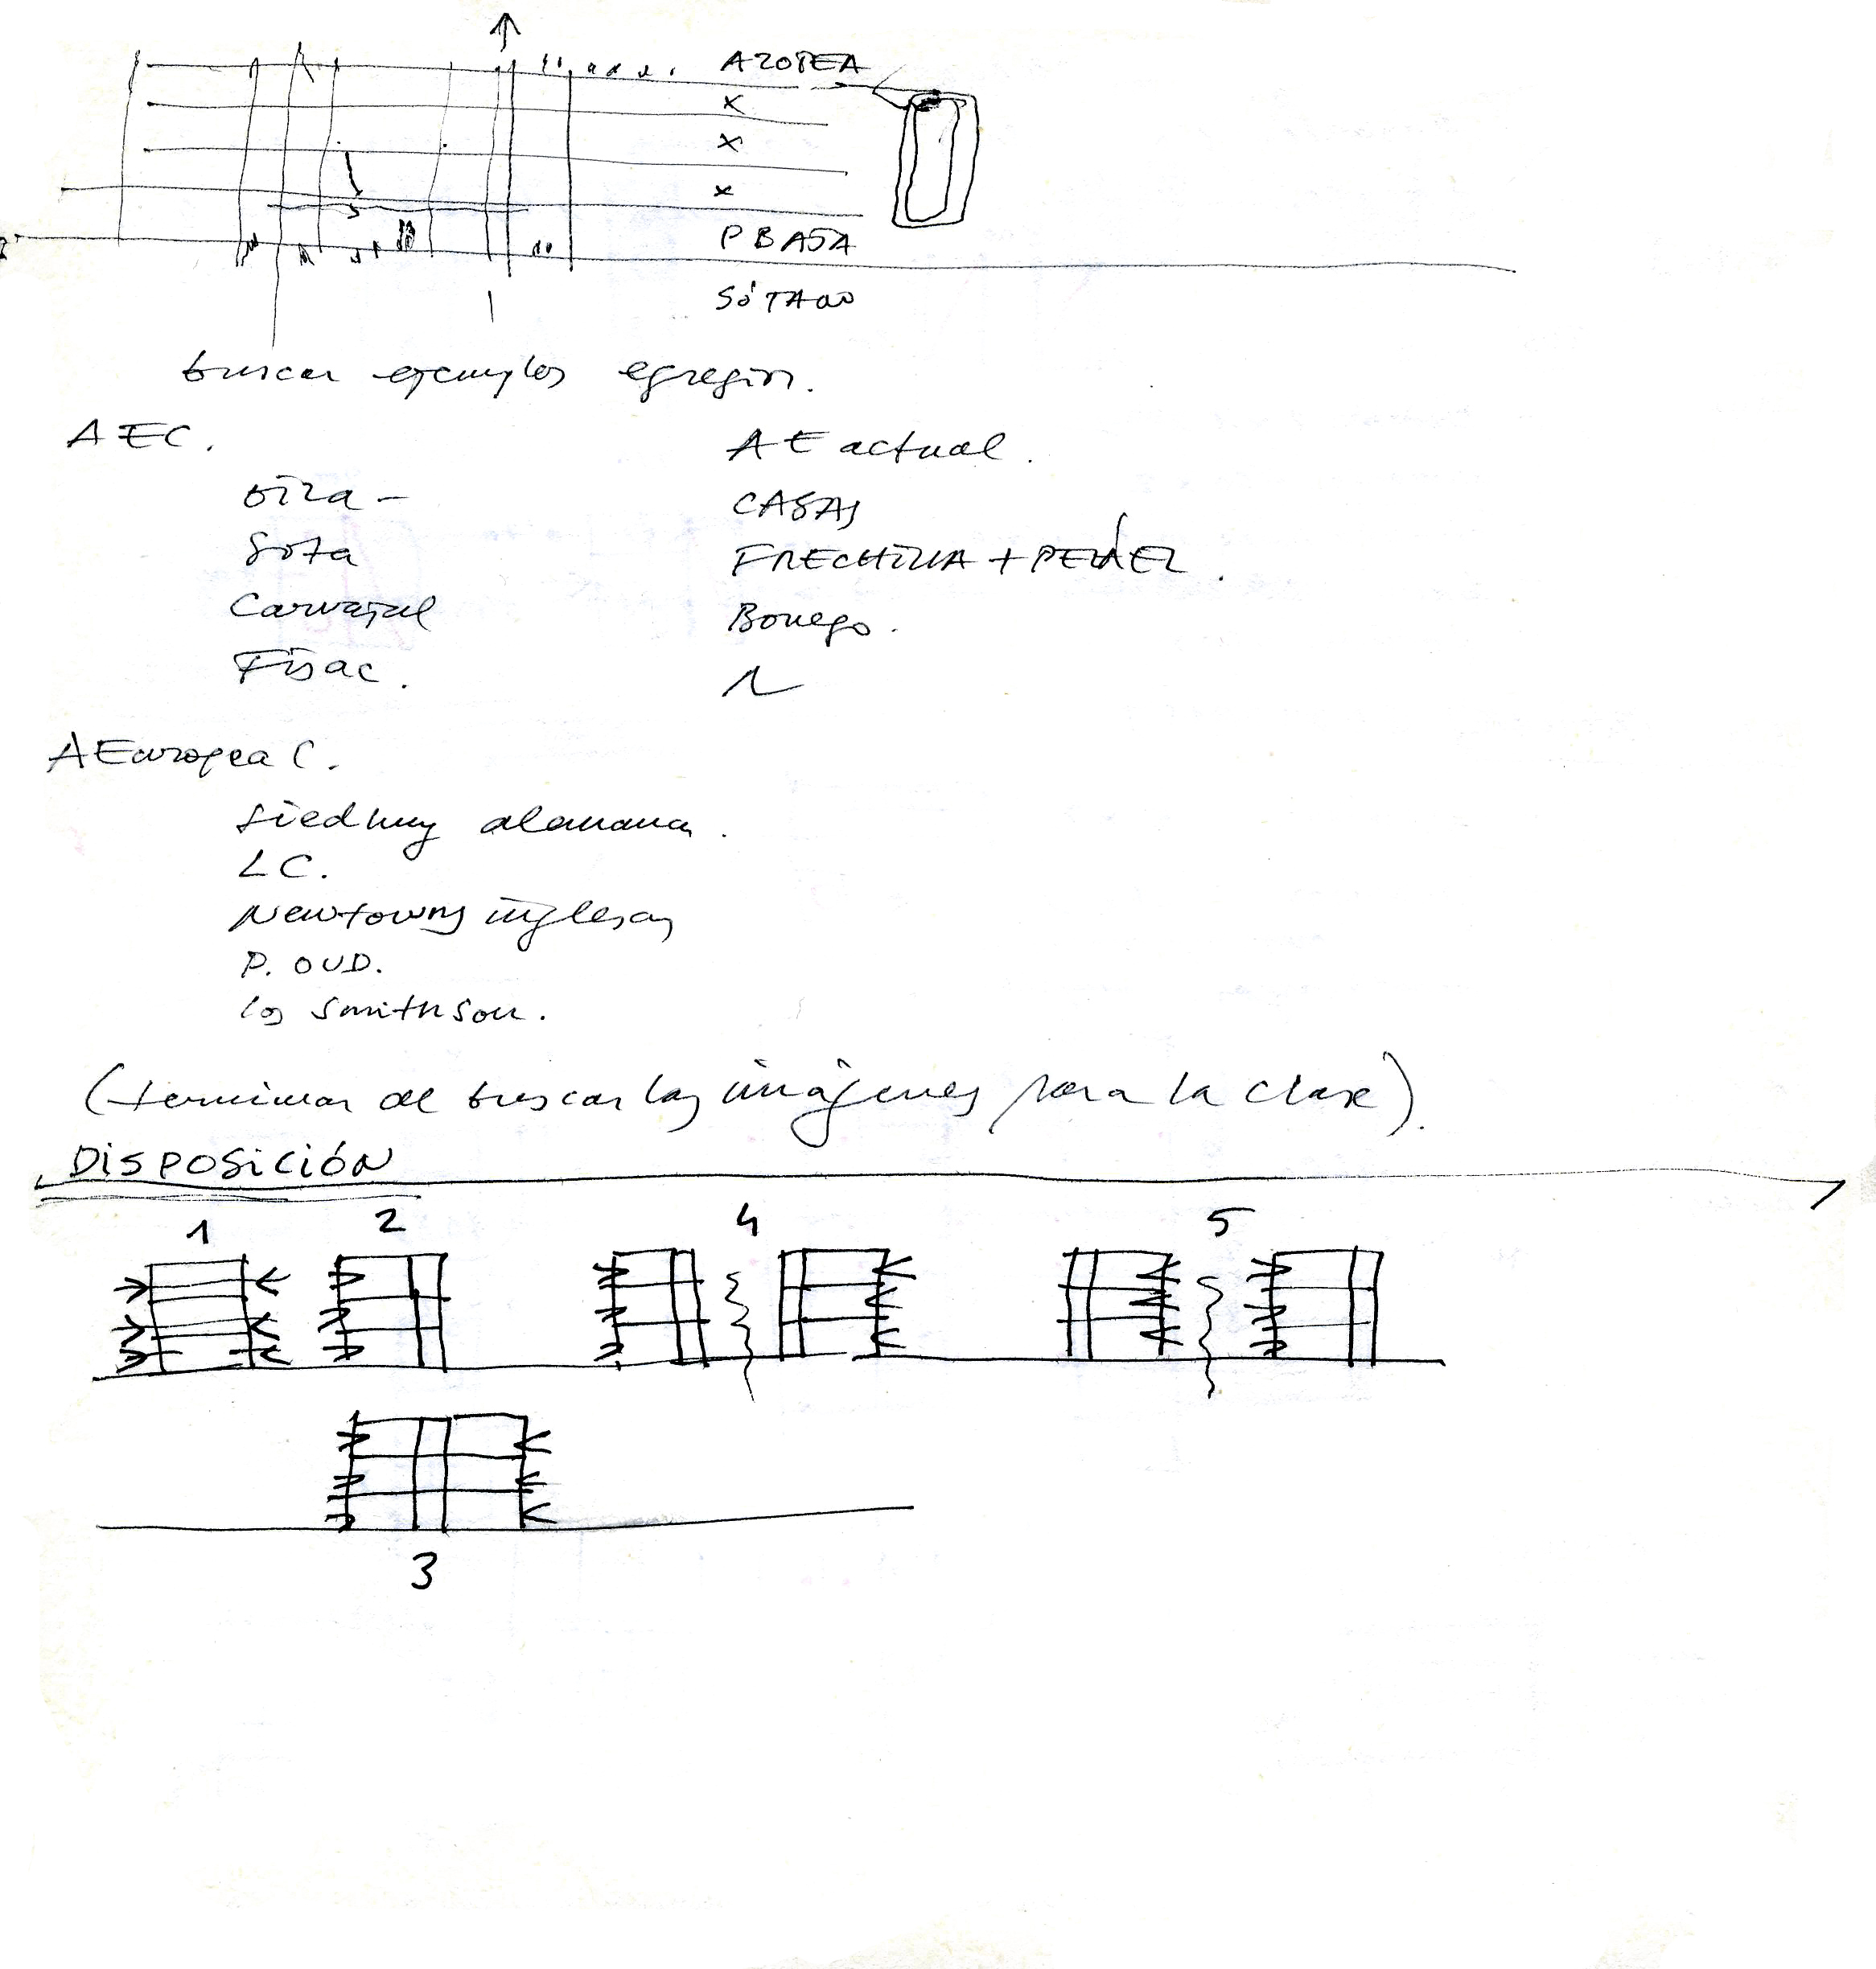 AZOTEA
x
x
x
P BAJA
SÓTANO
buscar ejemplos egregios.
AEC.
Oíza –
Sota
Carvajal
Fisac.
AE actual.
CASAS
FRECHILLA + PELÁEZ.
AEuropea C.
Siedlung alemanas.
LC.
Newtowns inglesas
P. OUD.
los Smithson.
(terminar de buscar las imágenes para la clase).
DISPOSICIÓN
1 2 4 5
3